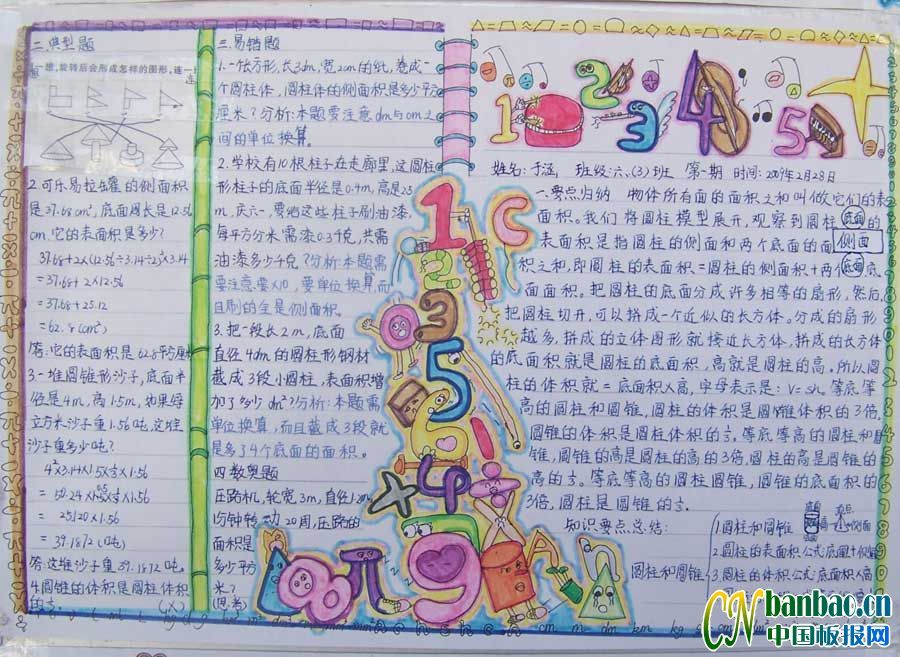 二.典型题
一维,旋转后会形成怎样的图形,连一
2.可乐易拉罐的侧面积
是37.68cm²,底面周长是12.56
cm.它的表面积是多少?
37.68+2×(12.56÷3.14÷2)²×3.14
=37.68+2×12.56
=37.68+25.12
=62.8(cm²)
答:它的表面积是62.8平方厘米
3.一堆圆锥形沙子,底面半
径是4m,高1.5m,如果每
立方米沙子重1.56吨,这堆
沙子重多少吨?
=25.120×1.56
=39.1872(吨)
答:这堆沙子重39.1872吨。
4.圆锥的体积是圆柱体积
三.易错题
1.一张方形,长3dm,宽2cm的纸,卷成一
个圆柱体,圆柱体的侧面积是多少平方
厘米?分析:本题要注意dm与cm之
间的单位换算。
2.学校有10根柱子在走廊里,这圆柱
形柱子的底面半径是0.4m,高是2.5
m,庆六一,要给这些柱子刷油漆,
每平方分米需漆0.3千克,共需
油漆多少千克?分析:本题需
要注意:要×10,要单位换算,而
且刷的全是侧面积。
3.把一段长2m,底面
直径4dm的圆柱形钢材
截成3段小圆柱,表面积增
加了多少dm²?分析:本题需
单位换算,而且截成3段就
是多了4个底面的面积。
四.数奥题
压路机,轮宽3m,直径1.20m,
均钟转动20周,压路的
面积是
多少平方
米?
(思考)
1 2 3 4 5
姓名:于涵, 班级:六.(3)班 第一期 时间:2009年2月28日
一.要点归纳 物体所有面的面积之和叫做它们的表
面积。我们将圆柱模型展开,观察到圆柱的
底面
侧面
底面
表面积是指圆柱的侧面和两个底面的面
积之和,即圆柱的表面积=圆柱的侧面积+两个底
面面积。把圆柱的底面分成许多相等的扇形,然后
把圆柱切开,可以拼成一个近似的长方体,分成的扇形
越多,拼成的立体图形就接近长方体,拼成的长方体
的底面积就是圆柱的底面积,高就是圆柱的高。所以圆
柱的体积就=底面积×高,字母表示是:V=sh。等底等
高的圆柱和圆锥,圆柱的体积是圆锥体积的3倍,
圆锥的体积是圆柱体积的⅓。等底等高的圆柱和圆
锥,圆锥的高是圆柱的高的3倍,圆柱的高是圆锥的
高的⅓。等底等高的圆柱圆锥,圆锥的底面积的
3倍,圆柱是圆锥的⅓。
知识要点总结:
圆柱和圆锥
1.圆柱和圆锥
2.圆柱的表面积公式:底面积+侧面
3.圆柱的体积公式:底面积×高
1 C
2
3
5
6
× 4 ÷
8 π 9
CN banbao.cn
中国板报网